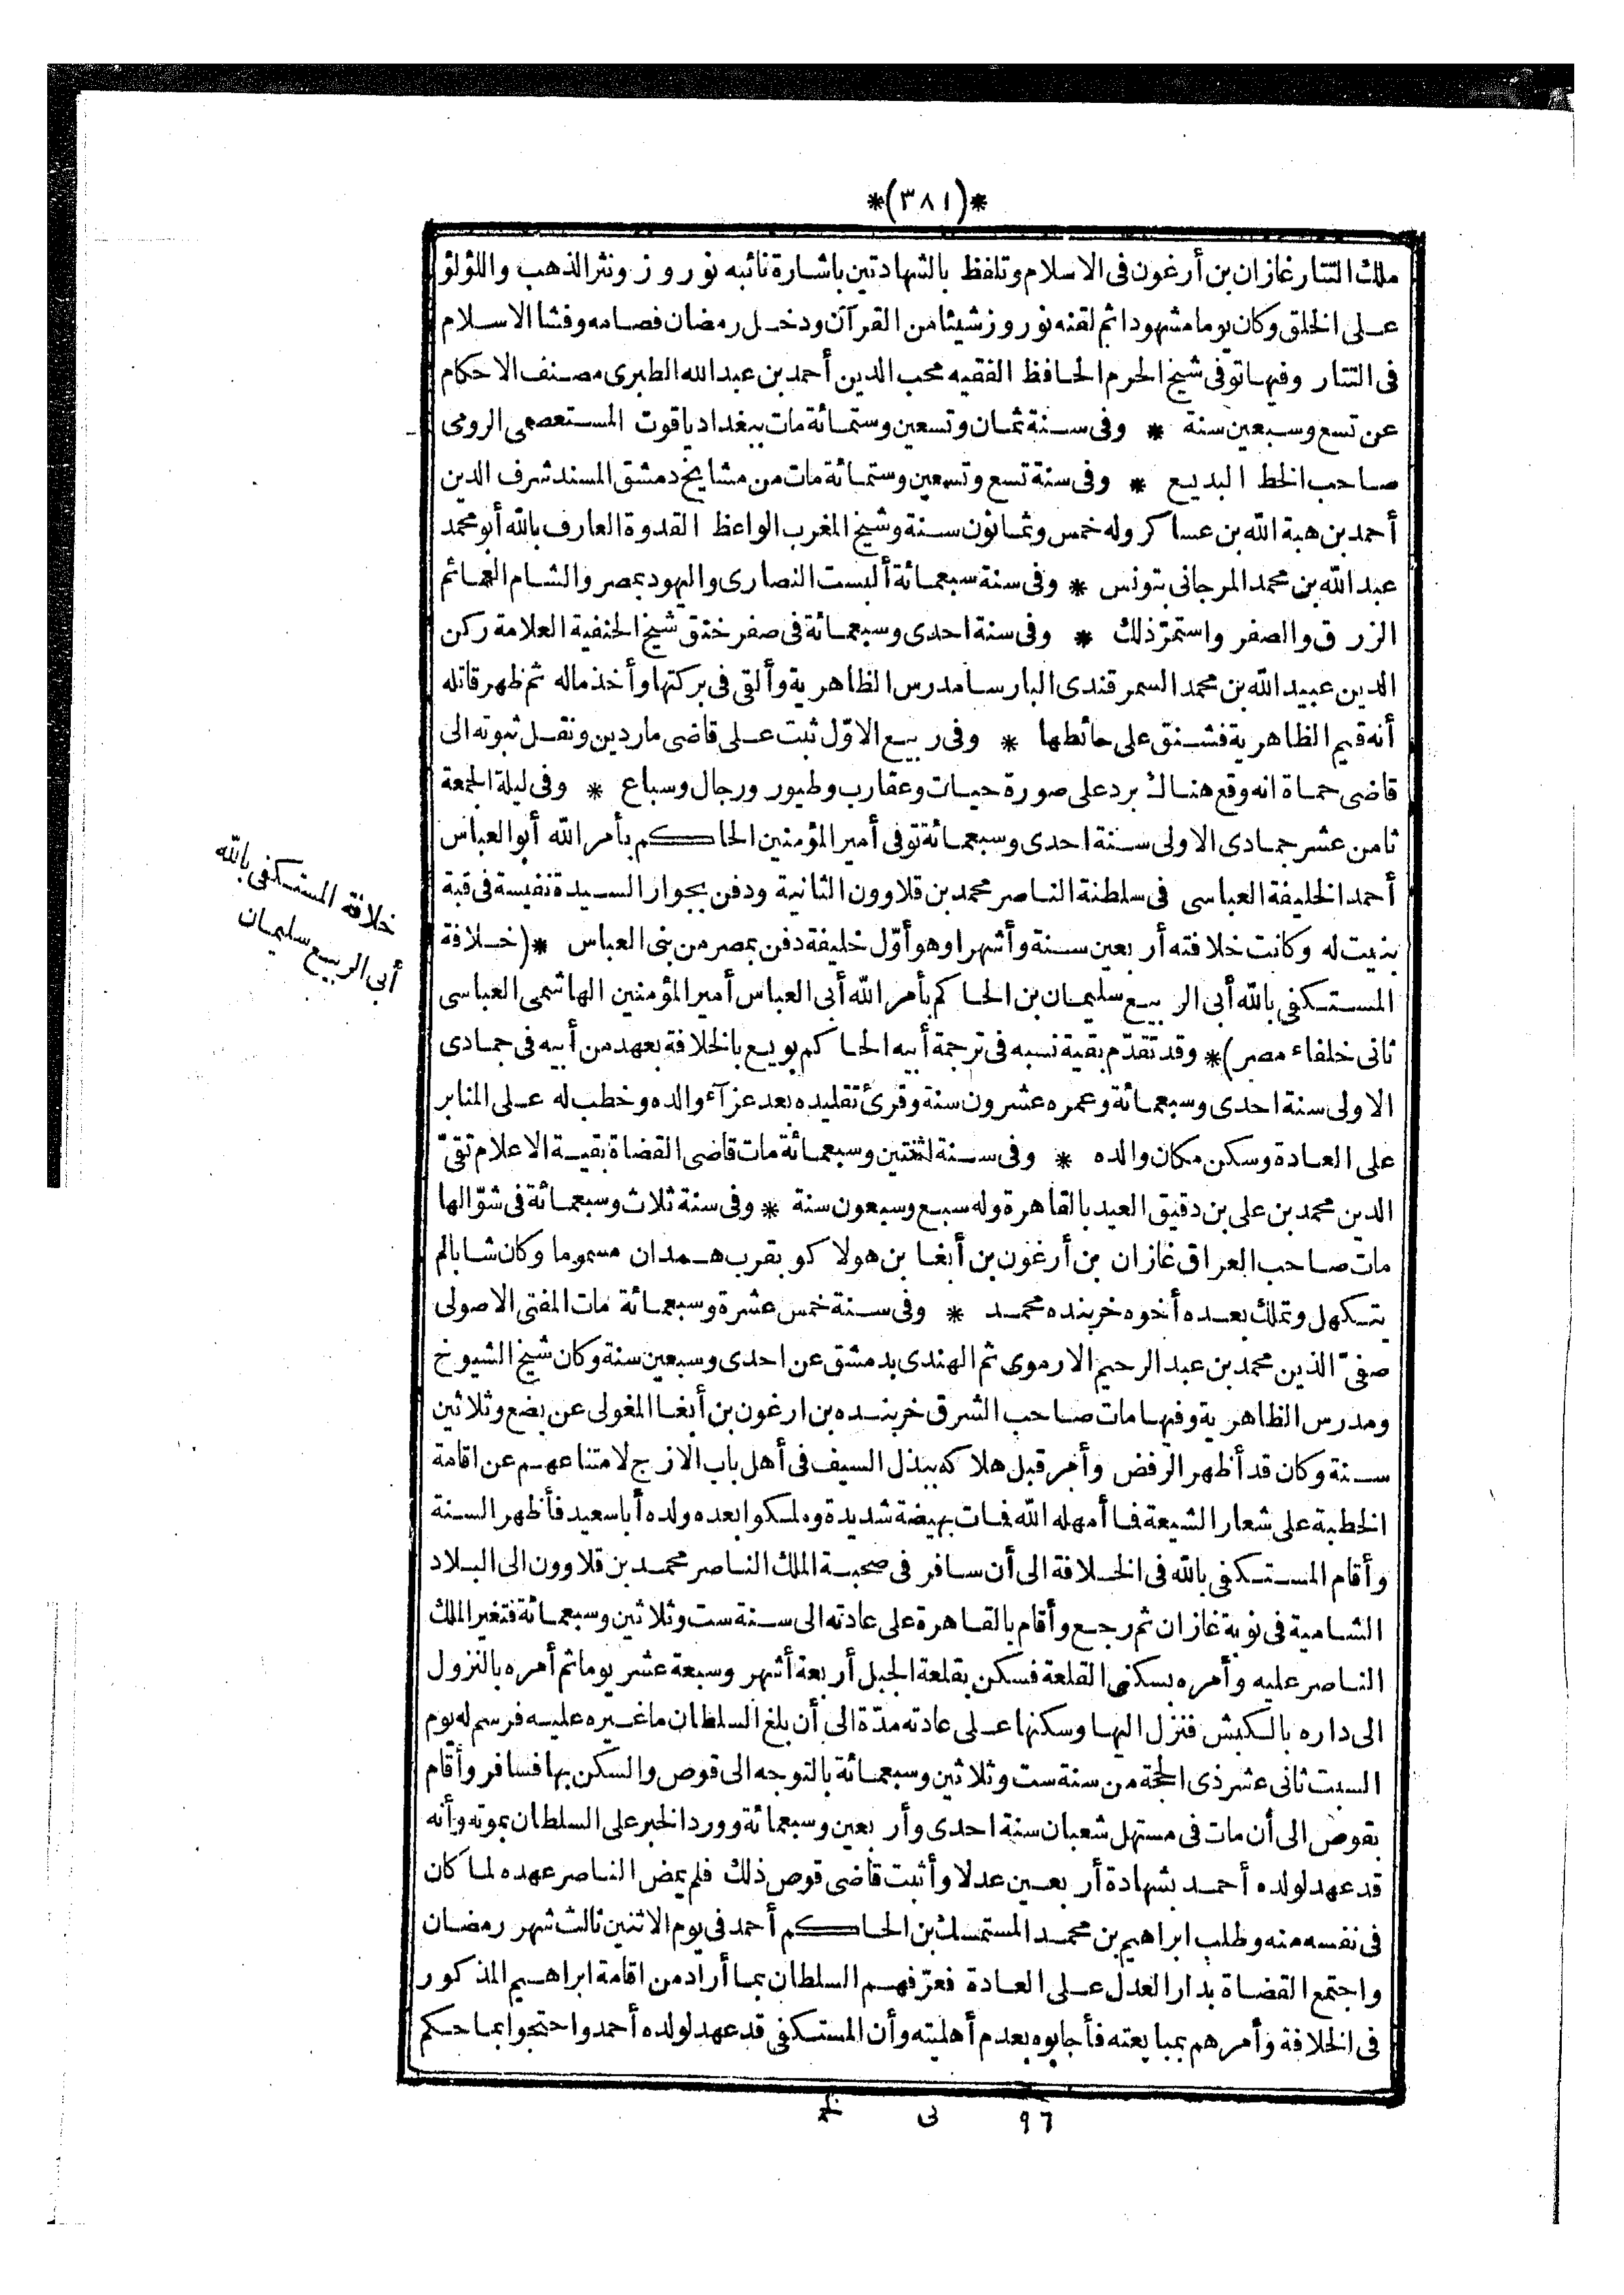 *(٣٨١)*
ملك التتار غازان بن أرغون فى الاسلام وتلفظ بالشهادتين باشارة نائبه نوروز ونثر الذهب واللؤلؤ
على الخلق وكان يوما مشهودا ثم لقنه نوروز شيئا من القرآن ودخل رمضان فصامه وفشا الاسلام
فى التتار وفيها توفى شيخ الحرم الحافظ الفقيه محب الدين أحمد بن عبد الله الطبرى مصنف الاحكام
عن تسع وسبعين سنة * وفى سنة ثمان وتسعين وستمائة مات ببغداد ياقوت المستعصمى الرومى
صاحب الخط البديع * وفى سنة تسع وتسعين وستمائة مات من مشايخ دمشق المسند شرف الدين
أحمد بن هبة الله بن عساكر وله خمس وثمانون سنة وشيخ المغرب الواعظ القدوة العارف بالله أبو محمد
عبد الله بن محمد المرجانى بتونس * وفى سنة سبعمائة ألبست النصارى واليهود بمصر والشام العمائم
الزرق والصفر واستمرّ ذلك * وفى سنة احدى وسبعمائة فى صفر خنق شيخ الحنفية العلامة ركن
الدين عبيد الله بن محمد السمرقندى البارسا مدرس الظاهرية وألقى فى بركتها وأخذ ماله ثم ظهر قاتله
أنه قيم الظاهرية فشنق على حائطها * وفى ربيع الاوّل ثبت على قاضى ماردين ونقل ثبوته الى
قاضى حماة انه وقع هناك برد على صورة حيات وعقارب وطيور ورجال وسباع * وفى ليلة الجمعة
ثامن عشر جمادى الاولى سنة احدى وسبعمائة توفى أمير المؤمنين الحاكم بأمر الله أبو العباس
أحمد الخليفة العباسى فى سلطنة الناصر محمد بن قلاوون الثانية ودفن بجوار السيدة نفيسة فى قبة
بنيت له وكانت خلافته أربعين سنة وأشهرا وهو أوّل خليفة دفن بمصر من بنى العباس *(خلافة
المستكفى بالله أبى الربيع سليمان بن الحاكم بأمر الله أبى العباس أمير المؤمنين الهاشمى العباسى
ثانى خلفاء مصر)* وقد تقدّم بقية نسبه فى ترجمة أبيه الحاكم بويع بالخلافة بعهد من أبيه فى جمادى
الاولى سنة احدى وسبعمائة وعمره عشرون سنة وقرئ تقليده بعد عزآء والده وخطب له على المنابر
على العادة وسكن مكان والده * وفى سنة اثنتين وسبعمائة مات قاضى القضاة بقية الاعلام تقىّ
الدين محمد بن على بن دقيق العيد بالقاهرة وله سبع وسبعون سنة * وفى سنة ثلاث وسبعمائة فى شوّالها
مات صاحب العراق غازان بن أرغون بن أبغا بن هولاكو بقرب همدان مسموما وكان شابا لم
يتكهل وتملك بعده أخوه خربنده محمد * وفى سنة خمس عشرة وسبعمائة مات المفتى الاصولى
صفىّ الذين محمد بن عبد الرحيم الارموى ثم الهندى بدمشق عن احدى وسبعين سنة وكان شيخ الشيوخ
ومدرس الظاهرية وفيها مات صاحب الشرق خربنده بن ارغون بن أبغا المغولى عن بضع وثلاثين
سنة وكان قد أظهر الرفض وأمر قبل هلاكه ببذل السيف فى أهل باب الازج لامتناعهم عن اقامة
الخطبة على شعار الشيعة فما أمهله الله فمات بهيضة شديدة وملكوا بعده ولده أبا سعيد فأظهر السنة
وأقام المستكفى بالله فى الخلافة الى أن سافر فى صحبة الملك الناصر محمد بن قلاوون الى البلاد
الشامية فى نوبة غازان ثم رجع وأقام بالقاهرة على عادته الى سنة ست وثلاثين وسبعمائة فتغير الملك
الناصر عليه وأمره بسكنى القلعة فسكن بقلعة الجبل أربعة أشهر وسبعة عشر يوما ثم أمره بالنزول
الى داره بالكبش فنزل اليها وسكنها على عادته مدّة الى أن بلغ السلطان ما غيره عليه فرسم له يوم
السبت ثانى عشر ذى الحجة من سنة ست وثلاثين وسبعمائة بالتوجه الى قوص والسكن بها فسافر وأقام
بقوص الى أن مات فى مستهل شعبان سنة احدى وأربعين وسبعمائة وورد الخبر على السلطان بموته وأنه
قد عهد لولده أحمد بشهادة أربعين عدلا وأثبت قاضى قوص ذلك فلم يمض الناصر عهده لما كان
فى نفسه منه وطلب ابراهيم بن محمد المستمسك بن الحاكم أحمد فى يوم الاثنين ثالث شهر رمضان
واجتمع القضاة بدار العدل على العادة فعرّفهم السلطان بما أراد من اقامة ابراهيم المذكور
فى الخلافة وأمرهم بمبايعته فأجابوه بعدم أهليته وأن المستكفى قد عهد لولده أحمد واحتجوا بما حكم
خلافة المستكفى بالله
أبى الربيع سليمان
٩٦ نى